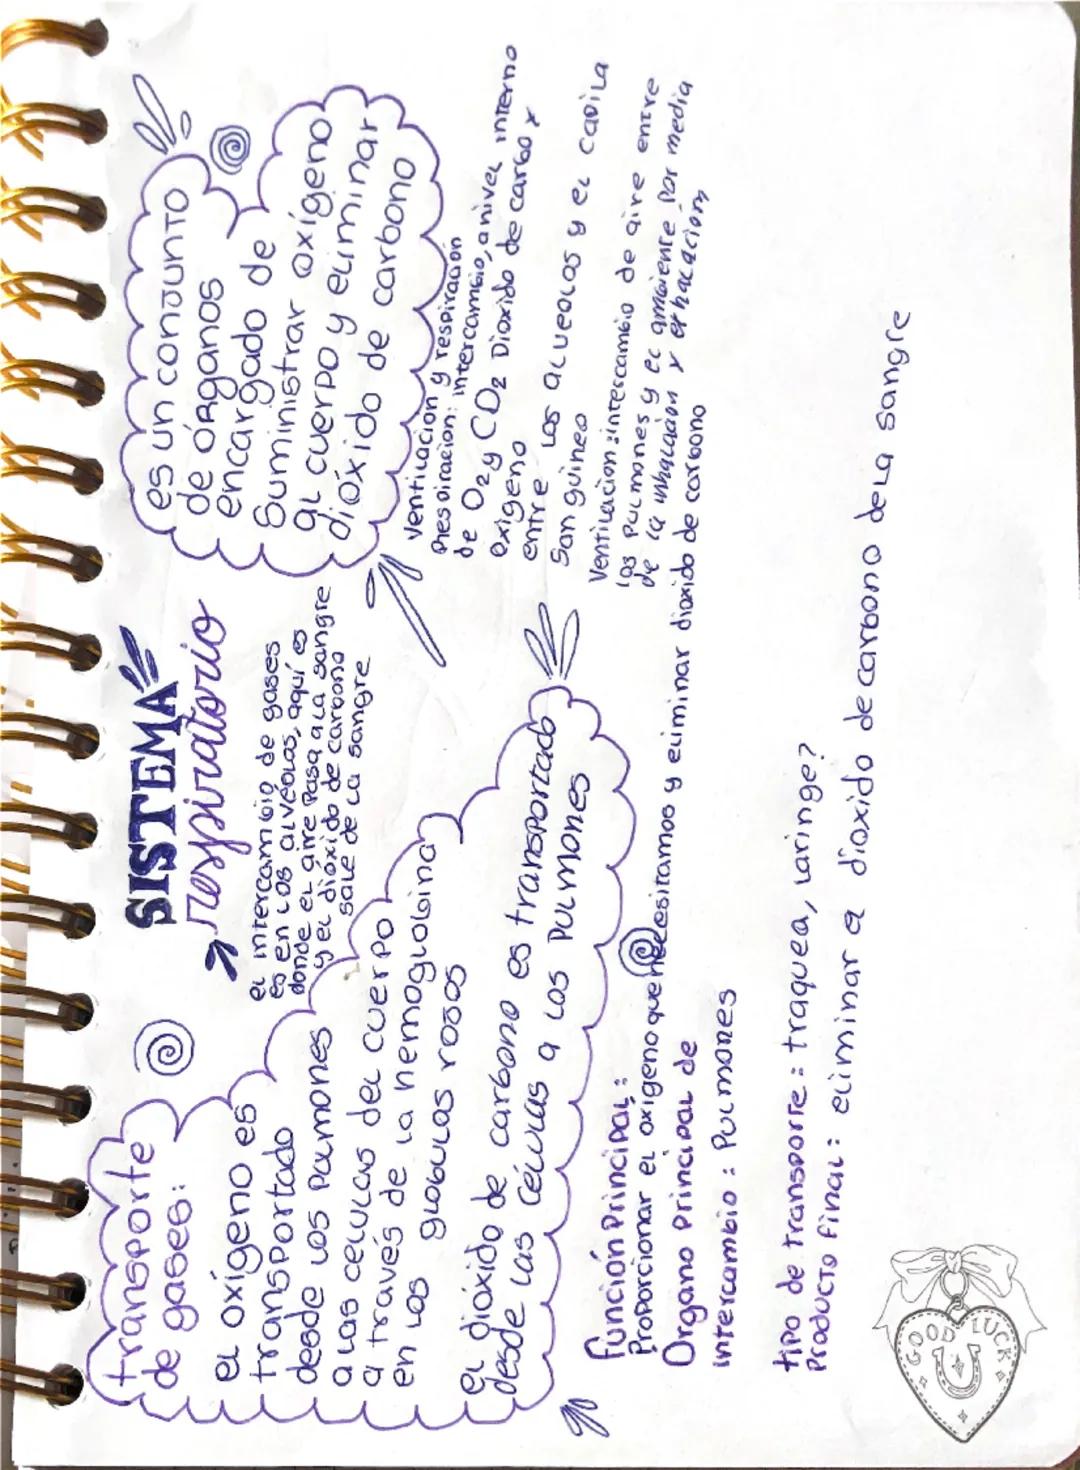 SISTEMA
respiratorio
transporte
de gases:
el oxígeno es
transportado
desde los pulmones
a las celulas del cuerpo
a través de la hemoglobina
en los globulos rosos
el dióxido de carbono es transportado
desde las células a los pulmones
el intercambio de gases
es en los alvéolos, aquí es
donde el aire pasa a la sangre
y el dióxido de carbono
sale de la sangre
es un conjunto
de órganos
encargado de
Suministrar oxígeno
al cuerpo y eliminar
dióxido de carbono
Ventilación y respiración
Respiración: intercambio, a nivel interno
de O2 y CO2 Dioxido de carbo x
oxigeno
entre los alveolos y el capila
San guineo
Ventilación: intercambio de aire entre
los pulmones y el ambiente por media
de la inhalación y exhalación
Función Principal:
Proporcionar el oxigeno que necesitamos y eliminar dioxido de carbono
Organo principal de
intercambio: Pulmones
tipo de transporte: traquea, laringe?
Producto final: eliminar a dioxido de carbono de la sangre
GOOD LUCK